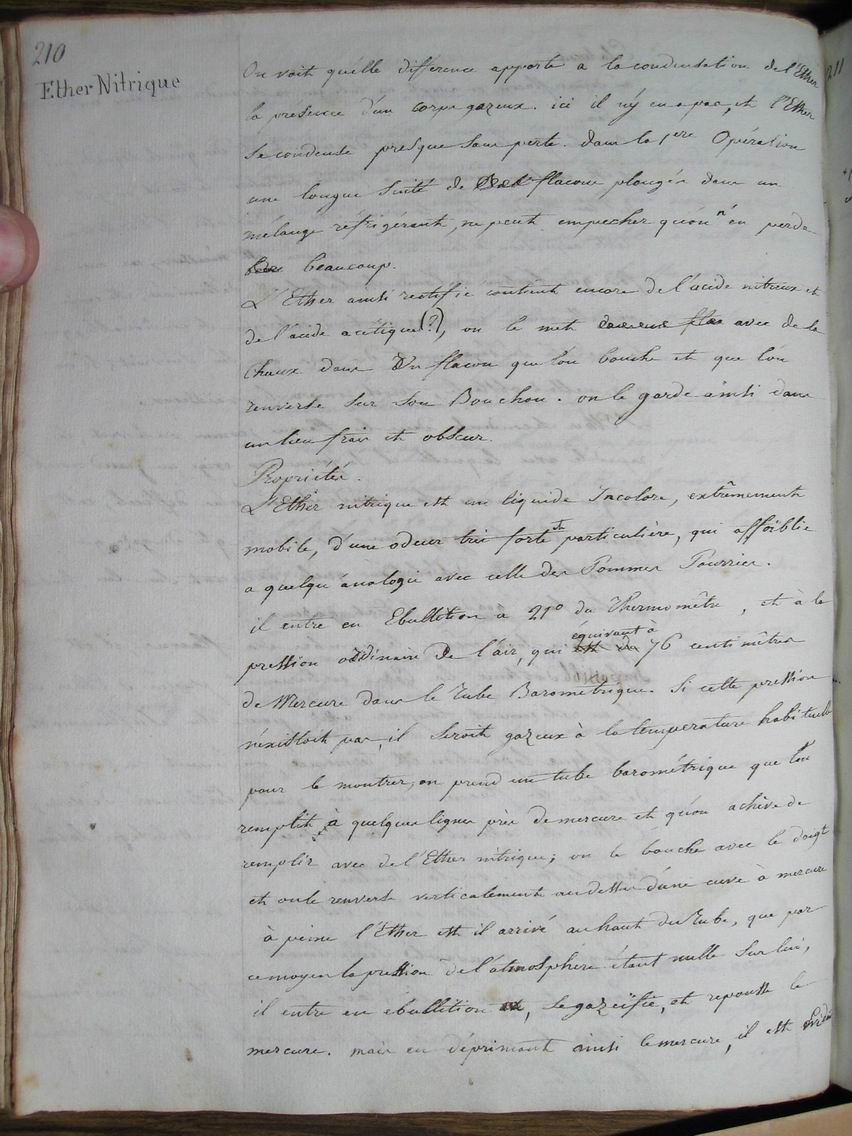 210
Ether Nitrique
On voit quelle difference apporte a la condensation de l'Ether
la presence d'un corps gazeux. ici il n'y en a pas, et l'Ether
se condense presque sans perte. dans la 1ere Opération
une longue suite de flacons plongés dans un
mélange réfrigérant, ne peut empecher qu'on n'en perde
beaucoup.
L'Ether ainsi rectifié contient encore de l'acide nitreux et
de l'acide acétique (?), on le met avec de la
chaux dans un flacon que l'on bouche et que l'on
renverse sur son Bouchon. on le garde ainsi dans
un lieu frais et obscur.
Propriétés.
L'Ether nitrique est un liquide Incolore, extrêmement
mobile, d'une odeur très forte et particulière, qui affoiblie
a quelqu'analogie avec celle des Pommes Pourries.
il entre en Ebullition a 21° du Thermomètre, et à la
pression ordinaire de l'air, qui équivaut à 76 centimètres
de Mercure dans le Tube Barométrique. Si cette pression
n'existoit pas, il seroit gazeux à la temperature habituelle
pour le montrer, on prend un tube barométrique que l'on
remplit à quelques lignes près de mercure et qu'on achève de
remplir avec de l'Ether nitrique; on le bouche avec le doigt
et on le renverse verticalement au dessus d'une cuve à mercure
à peine l'Ether est il arrivé au haut du Tube, que par
ce moyen la pression de l'atmosphère étant nulle sur lui,
il entre en ebullition, se gazéifie, et repousse le
mercure. mais en déprimant ainsi le mercure, il est
211